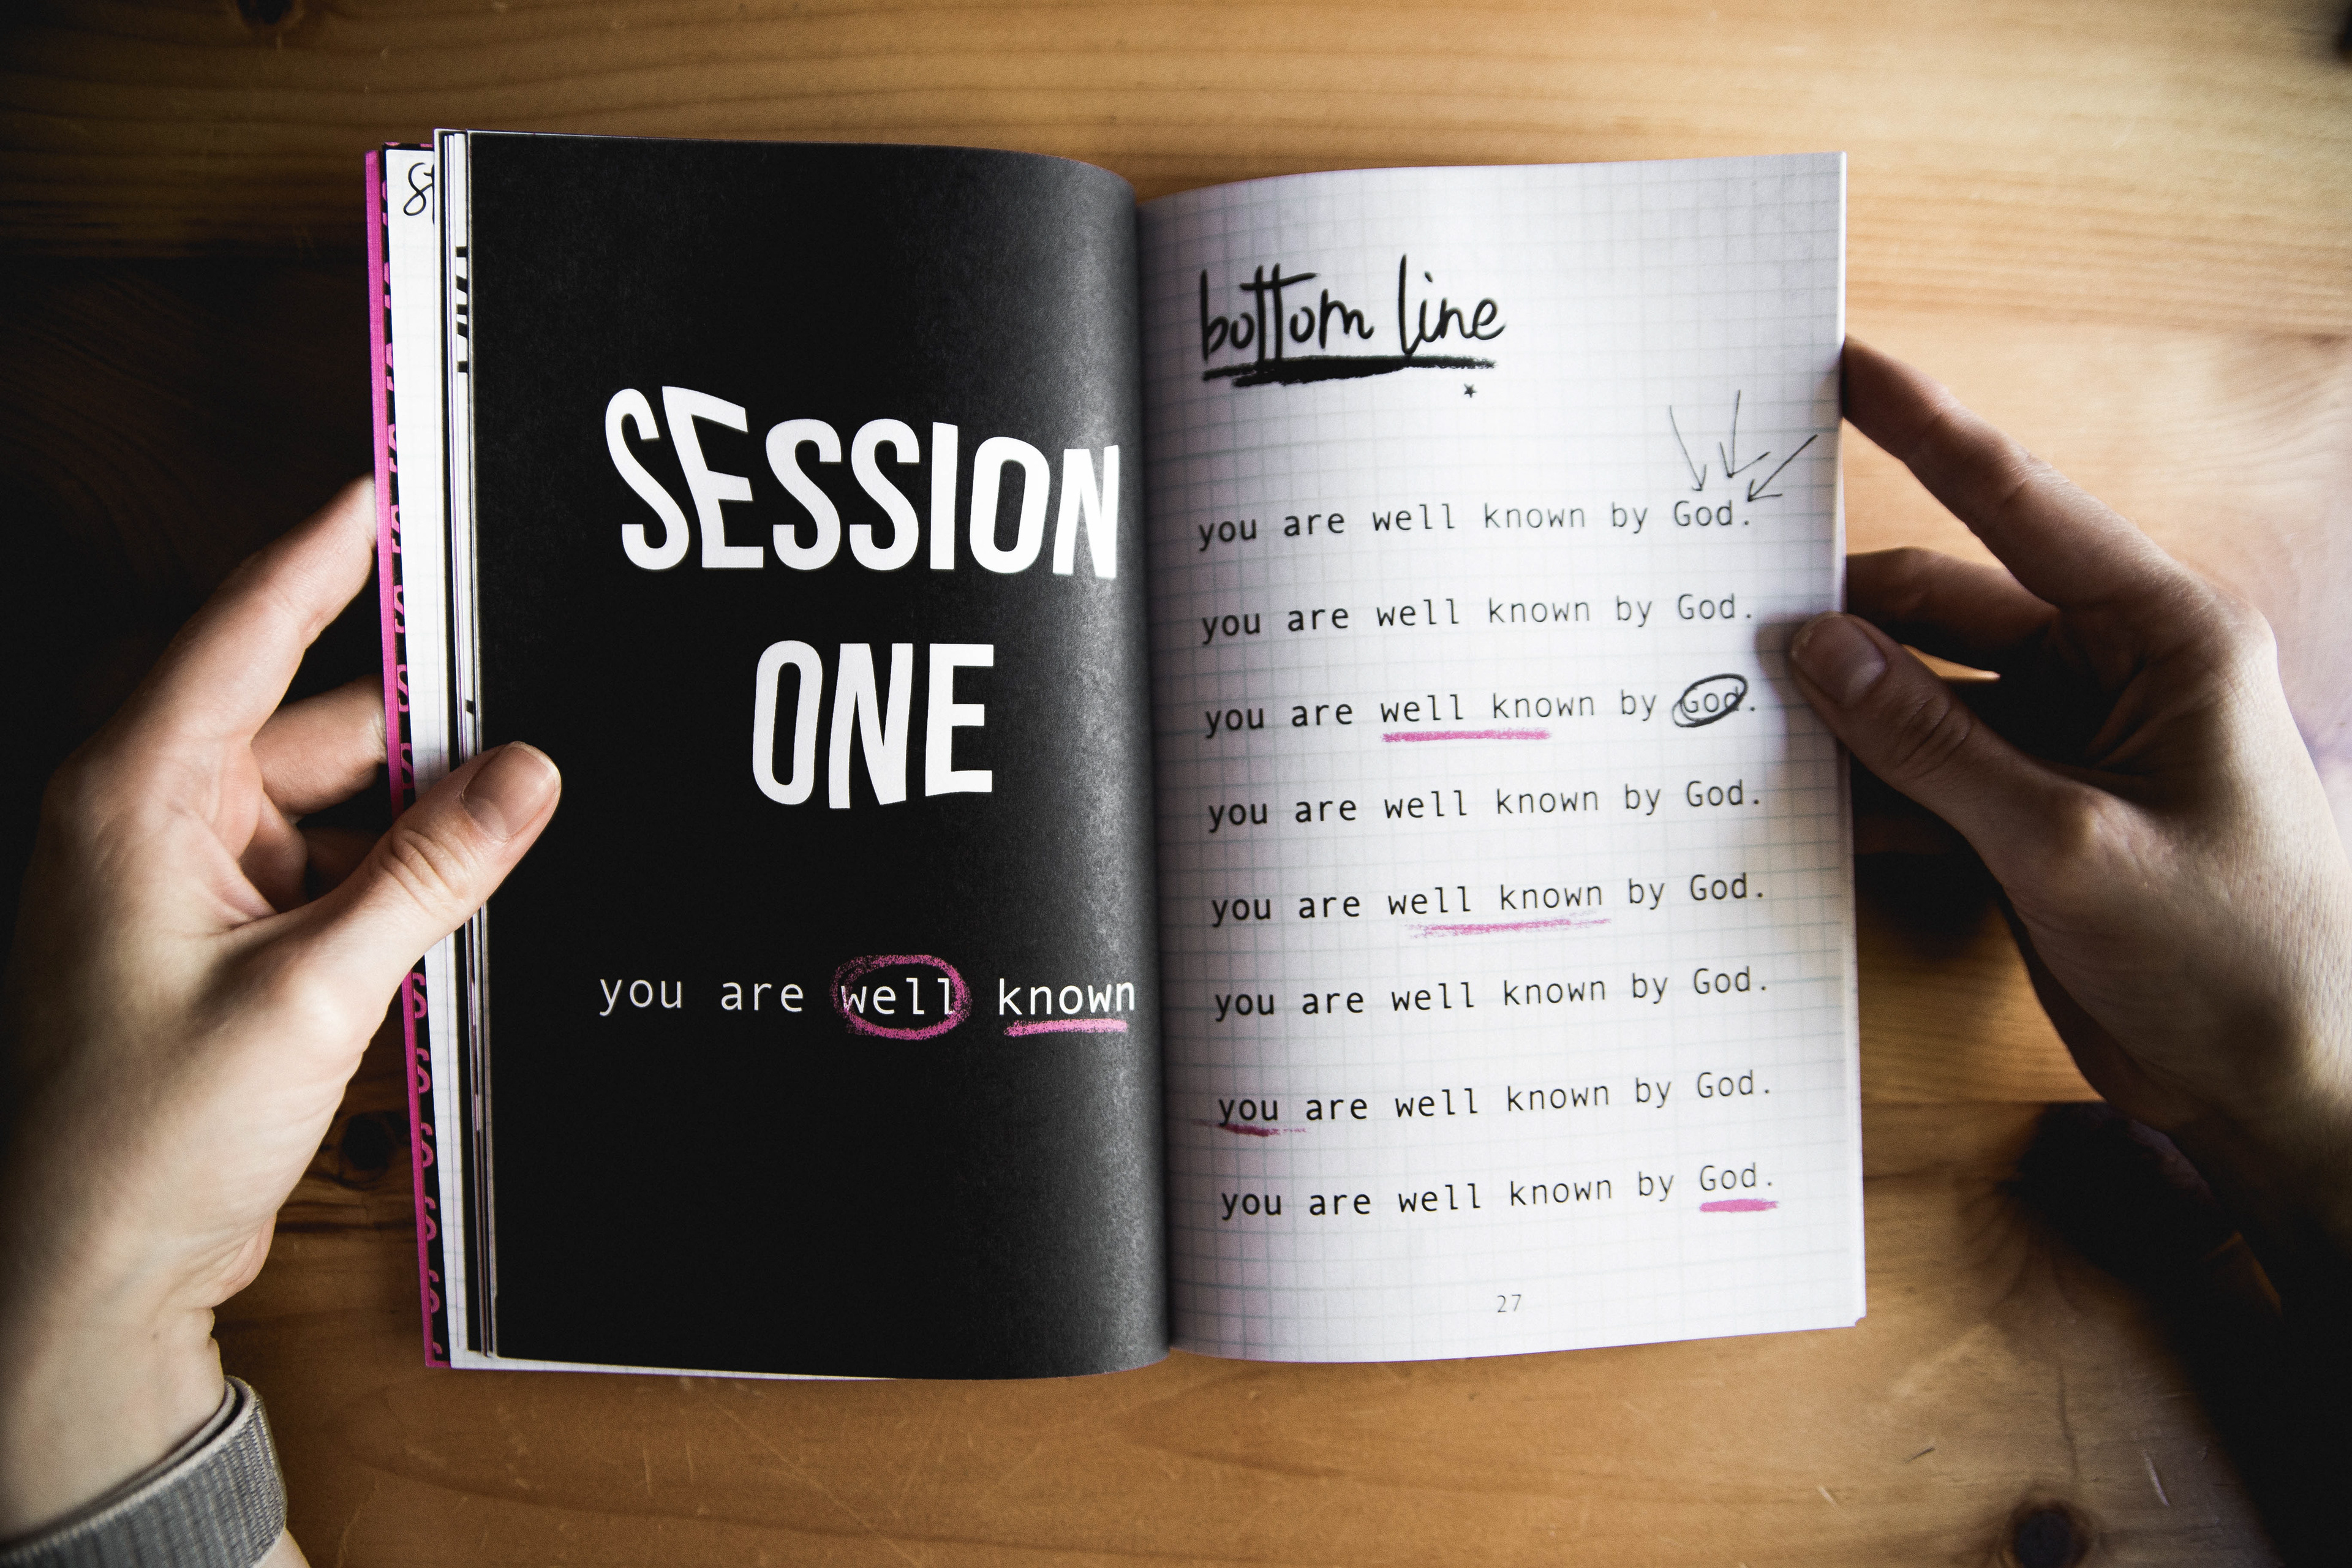 SESSION
ONE
you are well known
bottom line
you are well known by God.
you are well known by God.
you are well known by God.
you are well known by God.
you are well known by God.
you are well known by God.
you are well known by God.
you are well known by God.
27